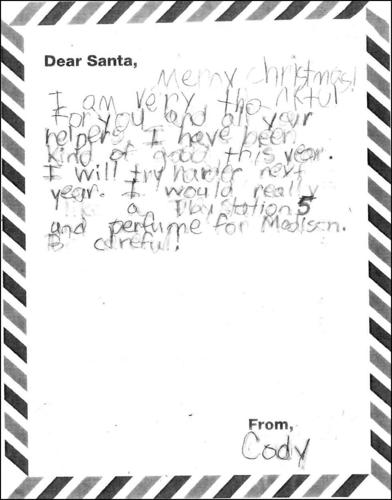 Dear Santa,
Merry Christmas!
I am very thankful
for you and all your
helpers. I have been
kind of good this year.
I will try harder next
year. I would really
like a Playstation 5
and perfume for Madison.
B careful!
From,
Cody